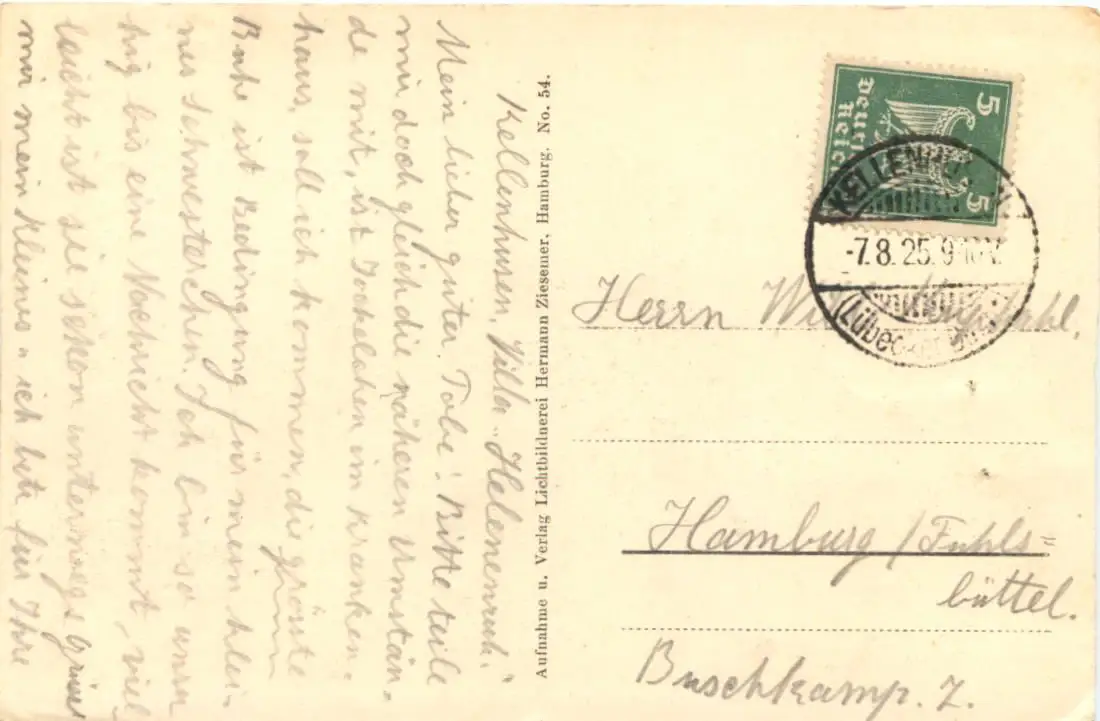 Kellenhusen, Villa „Helenenruh".
Mein lieber guter Tobe! Bitte teile
mir doch gleich die näheren Umstän-
de mit, ist Tochelchen im Kranken-
haus, soll ich kommen, die grösste
Ruhe ist Bedingung für mein klei-
nes Schwesterchen. Ich bin so unru
hig bis eine Nachricht kommt, viel
leicht ist sie schon unterwegs Grüsse
mir mein Kleines u. ich bete für Ihre
Aufnahme u. Verlag Lichtbildnerei Hermann Ziesemer, Hamburg. No. 54.
5 5
Deutsches
Reich
KELLENHUSEN
-7.8.25.9-10V.
(Lübecker
Herrn
Hamburg / Fuhls=
büttel.
Buschkamp. 7.